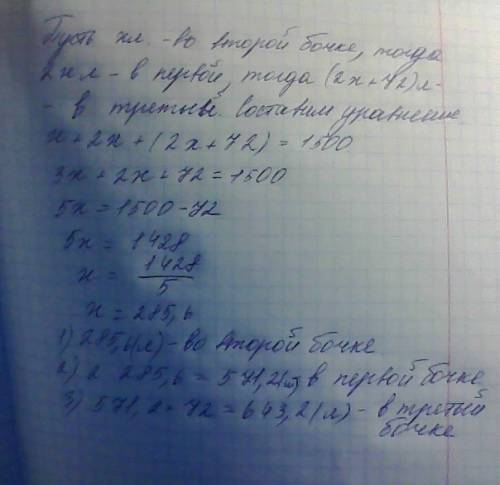 Пусть х л. - во второй бочке, тогда
2х л - в первой, тогда (2х+72) л -
- в третьей. Составим уравнение.
х + 2х + (2х + 72) = 1500
3х + 2х + 72 = 1500
5х = 1500 - 72
5х = 1428
х = 1428/5
х = 285,6
1) 285,6(л) - во второй бочке
2) 2 · 285,6 = 571,2(л) в первой бочке
3) 571,2 + 72 = 643,2(л) - в третьей
бочке